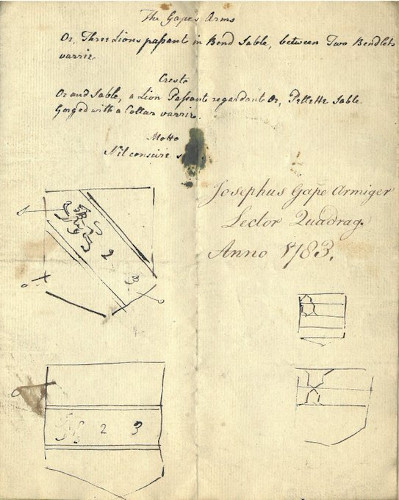 The Gape's Arms
Or, Three Lions passant in Bend Sable, between Two Bendlets
varrie.
Crest
Or and Sable, a Lion Passant regardant Or, Pellette Sable
Gorged with a Collar varrie.
Motto
Nil conscire s
Josephus Gape Armiger
Lector Quadrag.
Anno 1783.
2
3
2 3